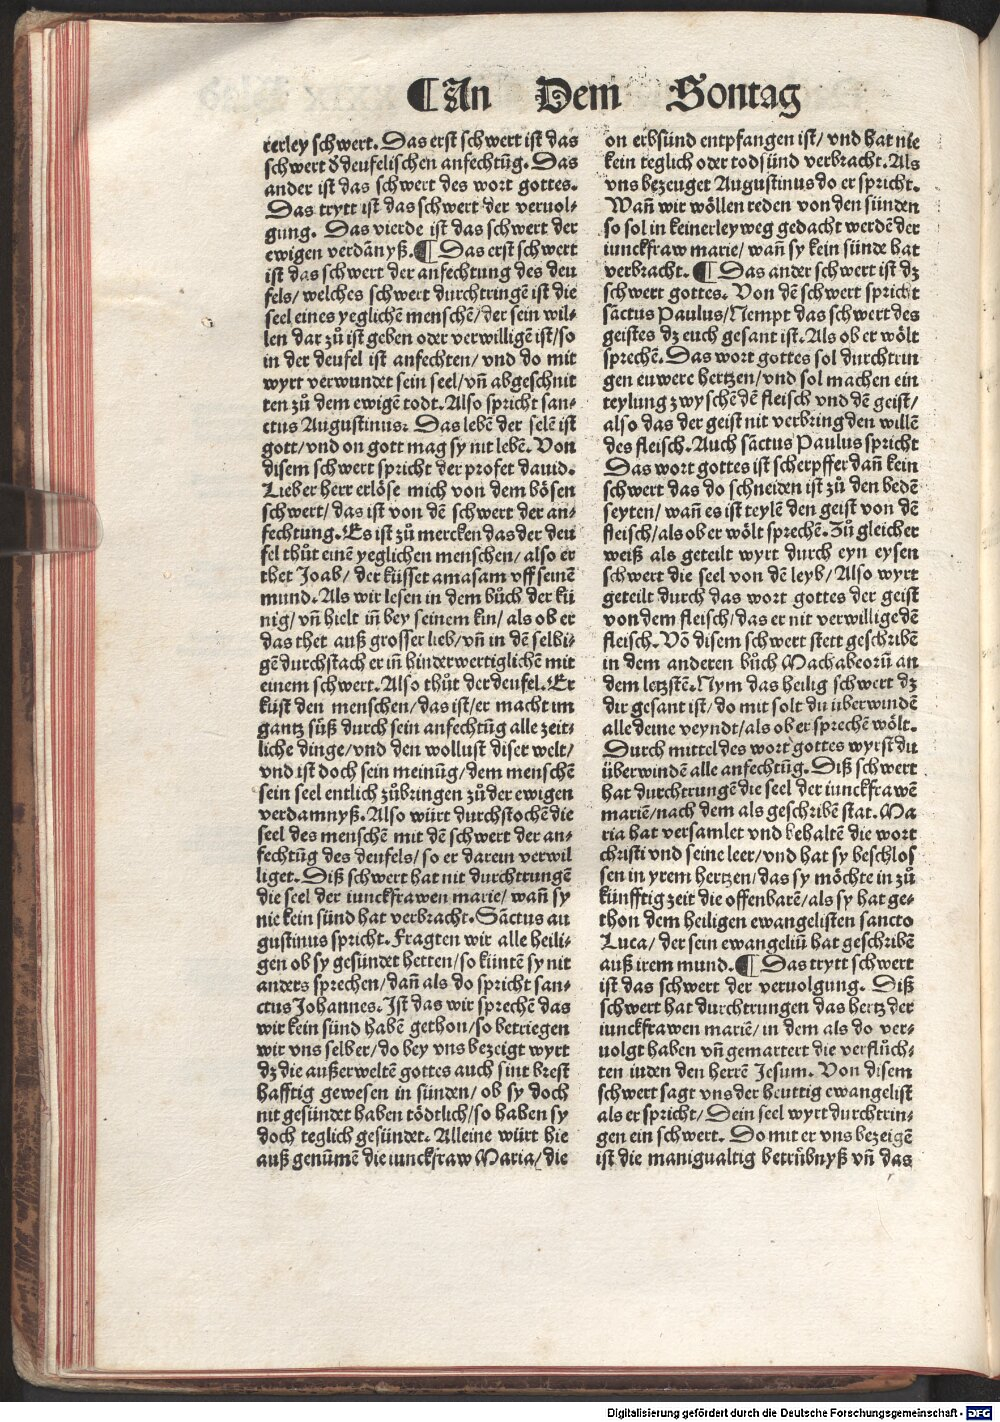 ¶ An Dem Sontag
rerley schwert. Das erst schwert ist das
schwert ď deufelischen anfechtūg. Das
ander ist das schwert des wort gottes.
Das trytt ist das schwert der veruol-
gung. Das vierde ist das schwert der
ewigen verdānyß. ¶ Das erst schwert
ist das schwert der anfechtung des deu
fels/ welches schwert durchtringē ist die
seel eines yeglichen menschē/ der sein wil-
len dar zů ist geben oder verwilligē ist/ so
in der deufel ist anfechten/ vnd do mit
wyrt verwundet sein seel/ vn̄ abgeschnit
ten zů dem ewigē todt. Also spricht san-
ctus Augustinus: Das lebē der selē ist
gott/ vnd on gott mag sy nit lebē. Von
disem schwert spricht der profet dauid.
Lieber herr erlöse mich von dem bösen
schwert/ das ist von dē schwert der an-
fechtung. Es ist zů mercken das der deu
fel thůt einē yeglichen menschen/ also er
thet Joab/ der küsset amasam vff seinē
mund. Als wir lesen in dem bůch der kü
nig/ vn̄ hielt in̄ bey seinem kin/ als ob er
das thet auß grosser lieb/ vn̄ in dē selbi-
gē durchstach er in̄ hinderwertiglichē mit
einem schwert. Also thůt der deufel. Er
küst den menschen/ das ist/ er macht im
gantz sůß durch sein anfechtūg alle zeit-
liche dinge/ vnd den wollust diser welt/
vnd ist doch sein meinūg/ dem menschē
sein seel entlich zůbringen zů der ewigen
verdamnyß. Also würt durchstochē die
seel des menschē mit dē schwert der an-
fechtūg des deufels/ so er darein verwil
liget. Diß schwert hat nit durchtrungē
die seel der iunckfrawen marie/ wan̄ sy
nie kein sünd hat verbracht. Sāctus au
gustinus spricht. Fragten wir alle heili-
gen ob sy gesündet hetten/ so küntē sy nit
anders sprechen/ dan̄ als do spricht san-
ctus Johannes. Ist das wir sprechē das
wir kein sünd habē gethon/ so betriegen
wir vns selber/ do bey vns bezeigt wyrt
dz die außerweltē gottes auch sint brest
hafftig gewesen in sünden/ ob sy doch
nit gesündet haben tödtlich/ so haben sy
doch teglich gesündet. Alleine würt hie
auß genūmē die iunckfraw Maria/ die
on erbsünd entpfangen ist/ vnd hat nie
kein teglich oder todsünd verbracht. Als
vns bezeuget Augustinus do er spricht.
Wan̄ wir wöllen reden von den sünden
so sol in keinerley weg gedacht werdē der
iunckfraw marie/ wan̄ sy kein sünde hat
verbracht. ¶ Das ander schwert ist dz
schwert gottes. Von dē schwert spricht
sāctus Paulus/ Nempt das schwert des
geistes dz euch gesant ist. Als ob er wölt
sprechē. Das wort gottes sol durchtrin
gen euwere hertzen/ vnd sol machen ein
teylung zwyschē dē fleisch vnd dē geist/
also das der geist nit verbring den willē
des fleisch. Auch sāctus Paulus spricht
Das wort gottes ist scherpffer dan̄ kein
schwert das do schneiden ist zů den bedē
seyten/ wan̄ es ist teylē den geist von dē
fleisch/ als ob er wölt sprechē. Zů gleicher
weiß als geteilt wyrt durch eyn eysen
schwert die seel von dē leyb/ Also wyrt
geteilt durch das wort gottes der geist
von dem fleisch/ das er nit verwillige dē
fleisch. Vō disem schwert stett geschribē
in dem anderen bůch Machabeorū an
dem letzstē. Nym das heilig schwert dz
dir gesant ist/ do mit solt du überwindē
alle deine veyndt/ als ob er sprechē wölt.
Durch mittel des wort gottes wyrst du
überwindē alle anfechtūg. Diß schwert
hat durchtrungē die seel der iunckfrawē
mariē/ nach dem als geschribē stat. Ma
ria hat versamlet vnd behaltē die wort
christi vnd seine leer/ vnd hat sy beschlos
sen in yrem hertzen/ das sy möchte in zů
künfftig zeit die offenbarē/ als sy hat ge-
thon dem heiligen ewangelisten sancto
Luca/ der sein ewangeliū hat geschribē
auß irem mund. ¶ Das trytt schwert
ist das schwert der veruolgung. Diß
schwert hat durchtrungen das hertz der
iunckfrawen mariē/ in dem als do ver-
uolgt haben vn̄ gemartert die verflůch-
ten iuden den herrē Jesum. Von disem
schwert sagt vns der heuttig ewangelist
als er spricht/ Dein seel wyrt durchtrin-
gen ein schwert. Do mit er vns bezeigē
ist die manigualtig betrůbnyß vn̄ das
Digitalisierung gefördert durch die Deutsche Forschungsgemeinschaft - DFG